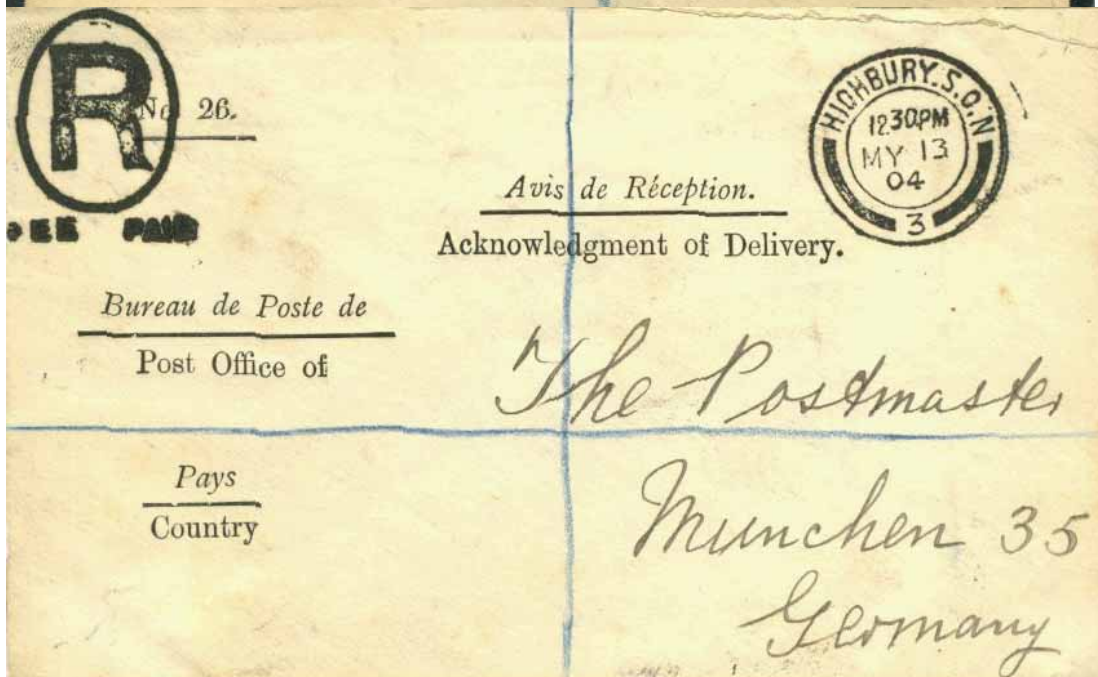 R
No. 26.
FEE PAID
HIGHBURY.S.O.N
12.30PM
MY 13
04
3
Avis de Réception.
Acknowledgment of Delivery.
Bureau de Poste de
Post Office of
The Postmaster
Pays
Country
Munchen 35
Germany